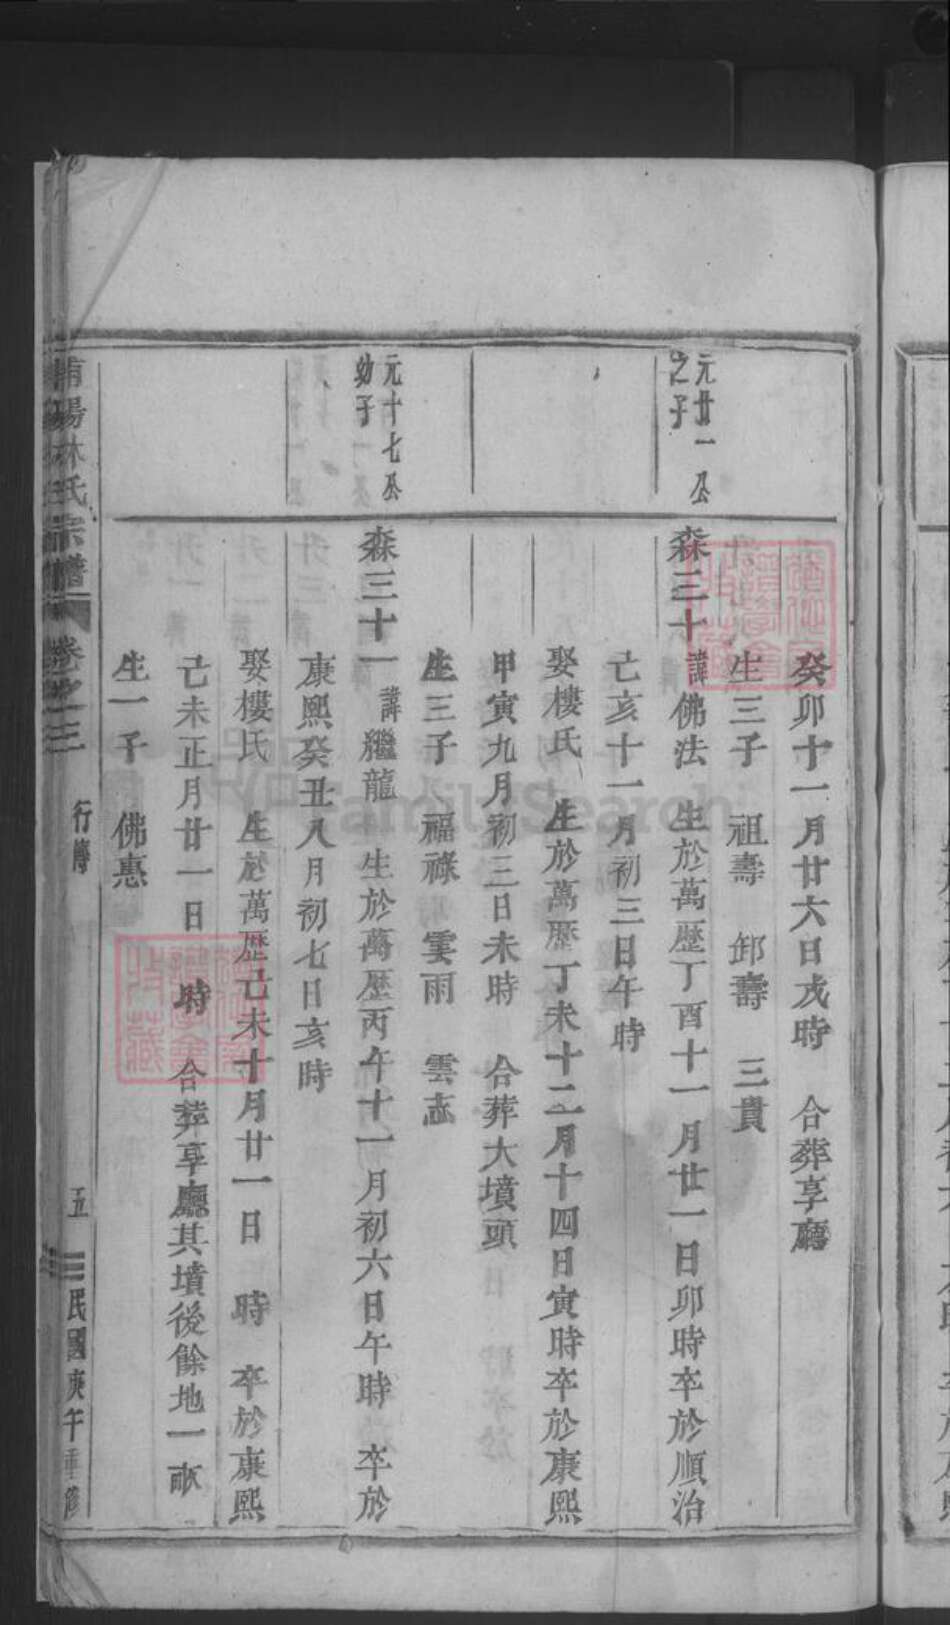 癸卯十一月廿六日戌時　合葬享廳
生三子　祖壽　卸壽　三貴
元廿一公
之子
森三十　諱佛法　生於萬歷丁酉十一月廿一日卯時卒於順治
己亥十一月初三日午時
娶樓氏　生於萬歷丁未十二月十四日寅時卒於康熙
甲寅九月初三日未時　合葬大墳頭
生三子　福祿　雲雨　雲志
元十七公
幼子
森三十一　諱繼龍　生於萬歷丙午十一月初六日午時　卒於
康熙癸丑八月初七日亥時
娶樓氏　生於萬歷己未十月廿一日　時　卒於康熙
己未正月廿一日　時　合葬享廳其墳後餘地一畝
生一子　佛惠
陽林氏宗譜　卷之三　行傳　五　民國庚午重修
FamilySearch